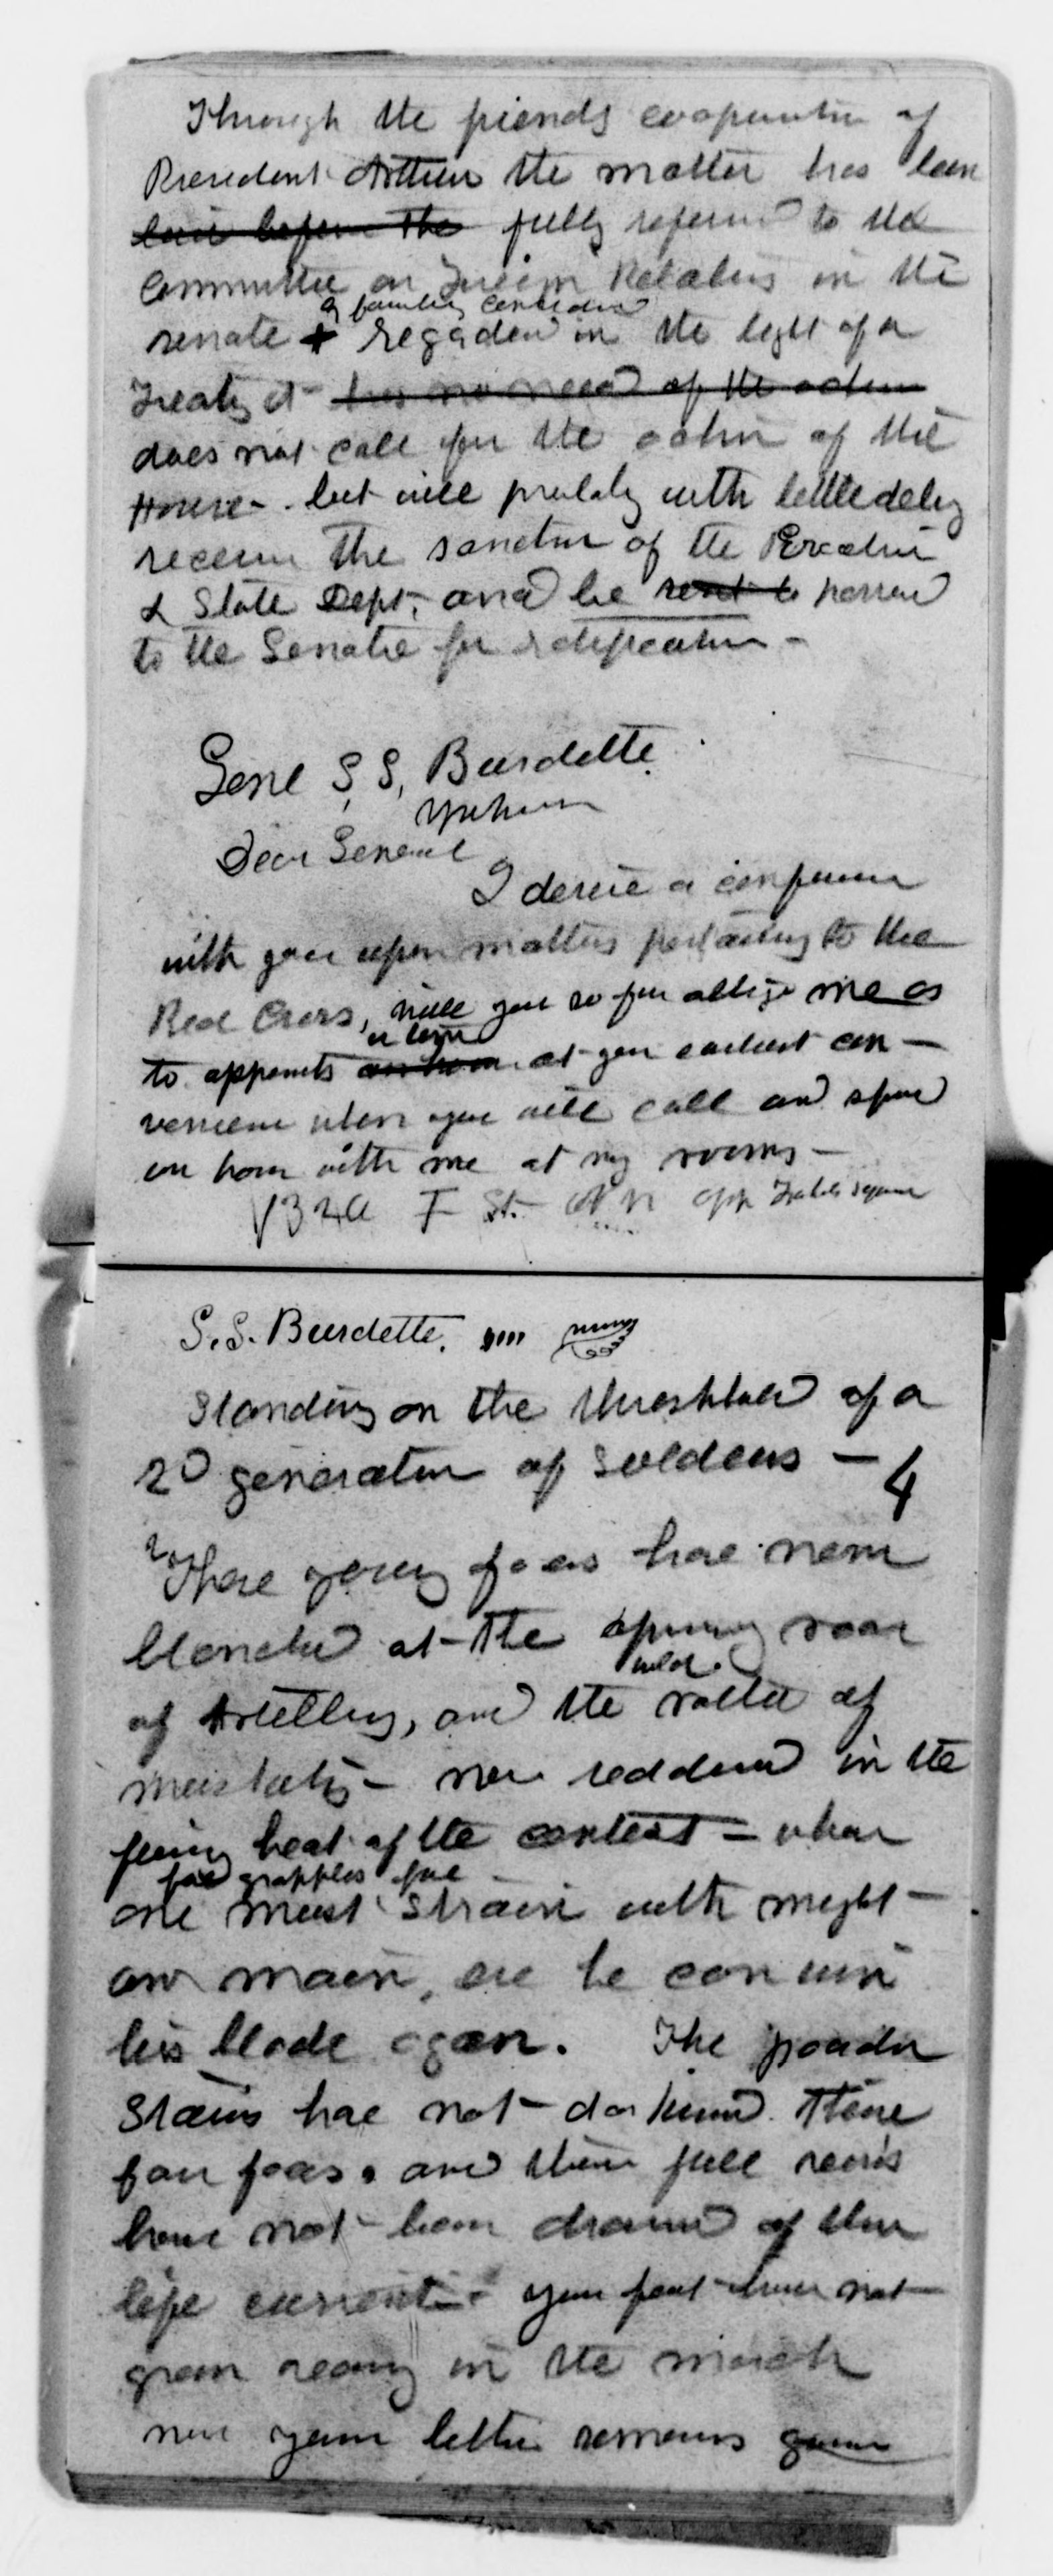 Through the friendly cooperation of
President Arthur the matter has been
laid before the fully referred to the
Committee on Foreign Relations in the
& families considered
senate + regarded in the light of a
Treaty it has no need of the action
does not call for the action of the
House - but will probably with little delay
receive the sanction of the Executive
& State Dept. and be sent to passed
to the Senate for ratification -
Genl S. S. Burdette
Dear General
I desire a conference
with you upon matters pertaining to the
Red Cross, will you so far oblige me as
to appoints an hour at your earliest con-
venience when you will call and spend
an hour with me at my rooms -
1326 F St. N N opp
S. S. Burdette.
Standing on the threshhold of a
2d generation of soldiers - 4
These young faces have never
blanched at the opening roar
of Artillery, and the rattle of
musketry - nor reddened in the
heat of the contest - when
foe grapples foe
one must strain with might
and main, ere he can win
his blade again. The powder
Stains have not darkened these
fair faces, and their full veins
have not been drained of their
life current - your feet have not
grown weary in the march
nor your